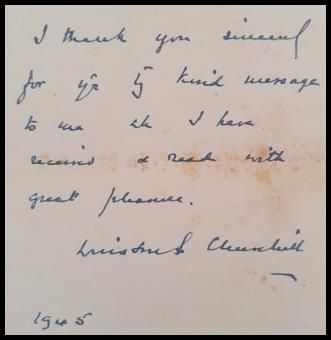 I thank you sincerely
for yr vy kind message
to me wh I have
received & read with
great pleasure.
Winston S Churchill
1945